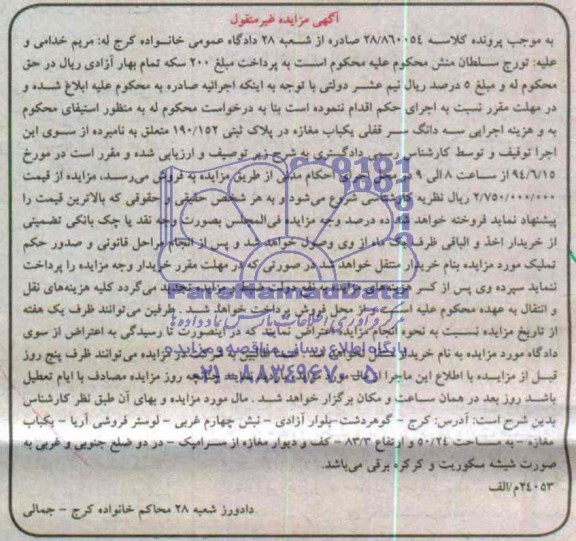 آگهی مزایده غیرمنقول
به موجب پرونده کلاسه ۲۸/۸۶۰۰۵۴ صادره از شعبه ۲۸ دادگاه عمومی خانواده کرج له: مریم خدامی و
علیه: تورج سلطان منش محکوم علیه محکوم است به پرداخت مبلغ ۲۰۰ سکه تمام بهار آزادی ریال در حق
محکوم له و مبلغ ۵ درصد ریال نیم عشر دولتی با توجه به اینکه اجرائیه صادره به محکوم علیه ابلاغ شده و
در مهلت مقرر نسبت به اجرای حکم اقدام ننموده است بنا به درخواست محکوم له به منظور استیفای محکوم
به و هزینه اجرایی سه دانگ سر قفلی یکباب مغازه در پلاک ثبتی ۱۹۰/۱۵۲ متعلق به نامبرده از سوی این
اجرا توقیف و توسط کارشناس رسمی دادگستری به شرح زیر توصیف و ارزیابی شده و مقرر است در مورخ
۹۴/۶/۱۵ از ساعت ۸ الی ۹ در محل اجرای احکام مدنی از طریق مزایده به فروش می‌رسد، مزایده از قیمت
۲/۷۵۰/۰۰۰/۰۰۰ ریال نظریه کارشناسی شروع می‌شود و به هر شخص حقیقی و حقوقی که بالاترین قیمت را
پیشنهاد نماید فروخته خواهد شد ده درصد وجه مزایده فی‌المجلس بصورت وجه نقد یا چک بانکی تضمینی
از خریدار اخذ و الباقی ظرف یک ماه از وی وصول خواهد شد و پس از انجام مراحل قانونی و صدور حکم
تملیک مورد مزایده بنام خریدار منتقل خواهد شد در صورتی که در مهلت مقرر خریدار وجه مزایده را پرداخت
ننماید سپرده وی پس از کسر هزینه‌های مزایده به نفع دولت ضبط و مزایده تجدید می‌گردد کلیه هزینه‌های نقل
و انتقال به عهده محکوم علیه است و از محل فروش پرداخت خواهد شد. طرفین می‌توانند ظرف یک هفته
از تاریخ مزایده نسبت به نحوه انجام مزایده اعتراض نمایند که در اینصورت تا رسیدگی به اعتراض از سوی
دادگاه مورد مزایده به نام خریدار منتقل نخواهد شد. ضمنا طالبین به شرکت در مزایده می‌توانند ظرف پنج روز
قبل از مزایده با اطلاع این ماجرا از مال مورد مزایده چنانچه روز مزایده مصادف با ایام تعطیل
باشد روز بعد در همان ساعت و مکان برگزار خواهد شد. مال مورد مزایده و بهای آن طبق نظر کارشناس
بدین شرح است: آدرس: کرج - گوهردشت-بلوار آزادی - نبش چهارم غربی - لوستر فروشی آریا - یکباب
مغازه - به مساحت ۵۰/۲۴ و ارتفاع ۸۳/۳ - کف و دیوار مغازه از سرامیک - در دو ضلع جنوبی و غربی به
صورت شیشه سکوریت و کرکره برقی می‌باشد.
۲۴۰۵۳/م/الف
دادورز شعبه ۲۸ محاکم خانواده کرج - جمالی
ParsNamadData
پایگاه اطلاع رسانی مناقصه و مزایده
۰۲۱-۸۸۳۴۹۶۷۰-۵